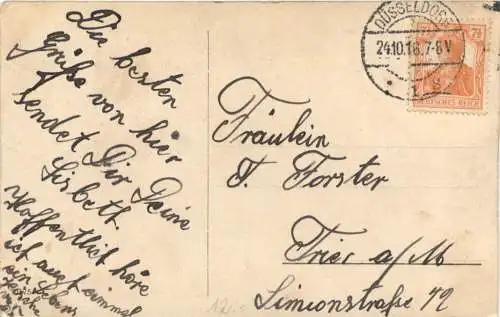 Die besten
Grüße von hier
sendet Dir Deine
Lisbeth
Hoffentlich höre
ich auch einmal
ein Lebens
DÜSSELDORF
24.10.16.7-8V
7½ 7½
DEUTSCHES REICH
Fräulein
T. Forster
Trier a/M
Simeonstraße 72